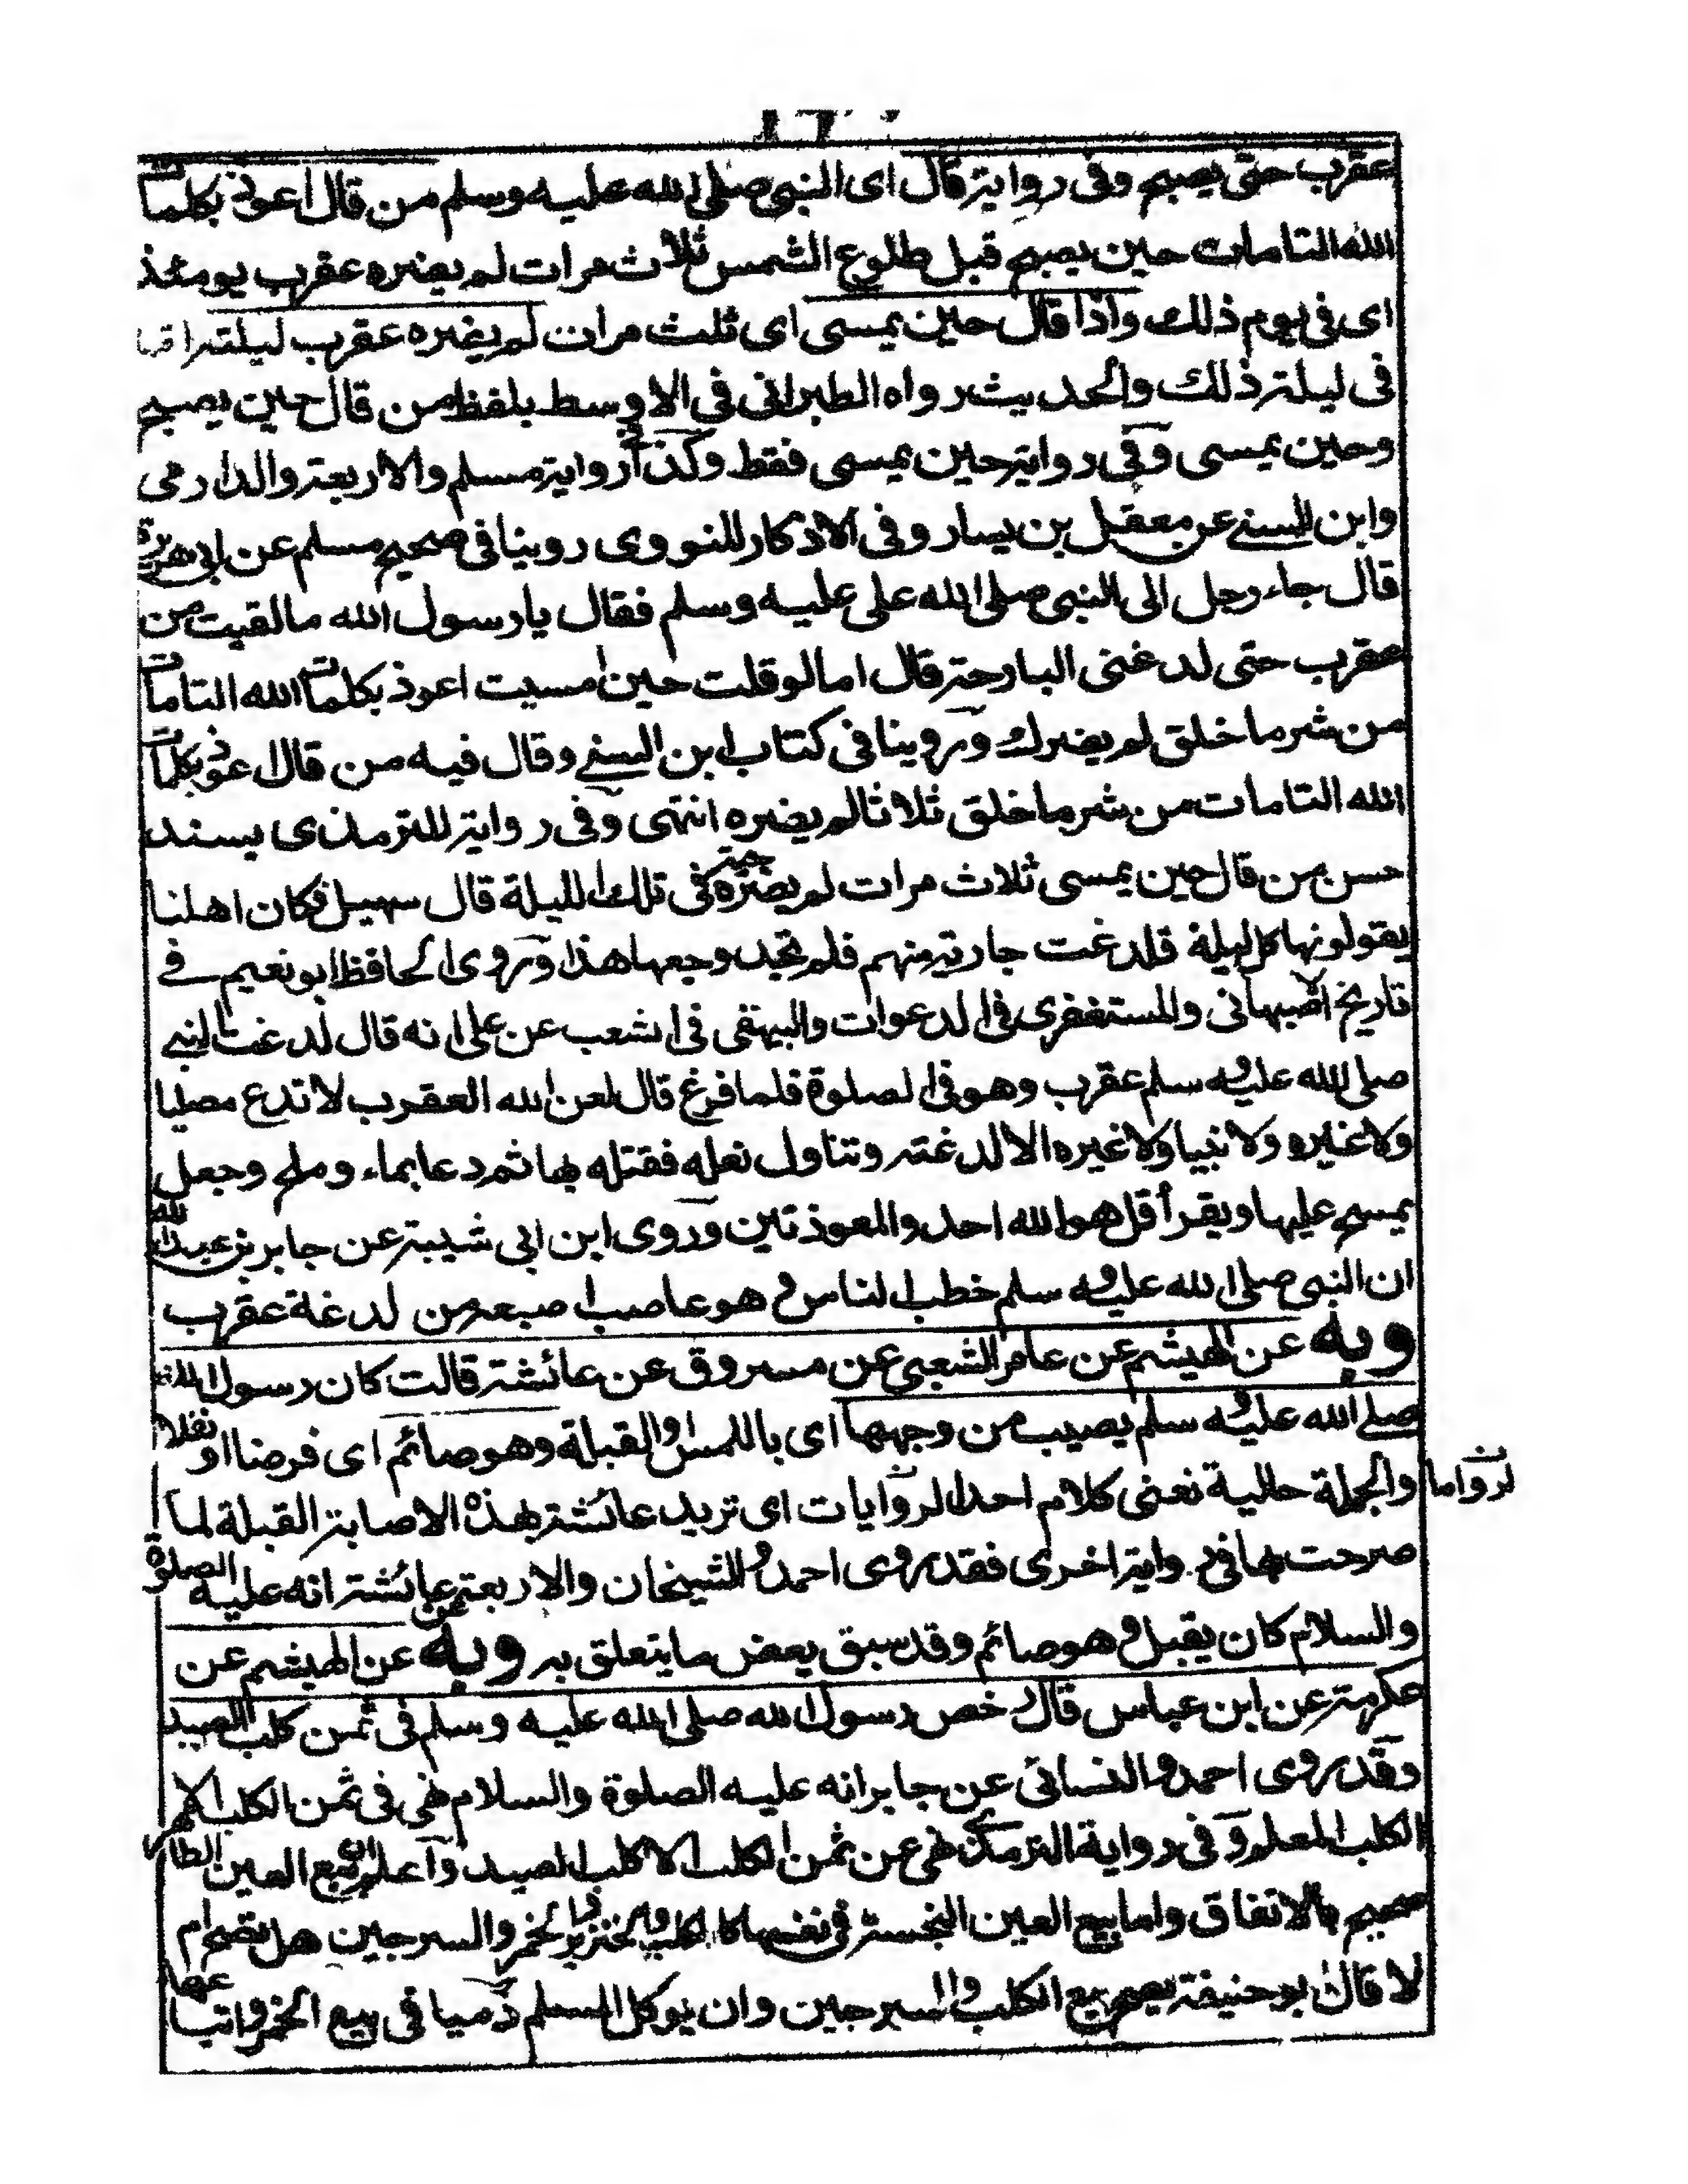 عقرب حتى يصبح وفى رواية قال اى النبى صلى الله عليه وسلم من قال اعوذ بكلمات
الله التامات حين يصبح قبل طلوع الشمس ثلاث مرات لم يضره عقرب يومئذ
اى فى يوم ذلك واذا قال حين يمسى اى ثلث مرات لم يضره عقرب ليلته اى
فى ليلة ذلك والحديث رواه الطبرانى فى الاوسط بلفظ من قال حين يصبح
وحين يمسى وفى رواية حين يمسى فقط وكذا فى رواية مسلم والاربعة والدارمى
وابن السنى عن معقل بن يسار وفى الاذكار للنووى روينا فى صحيح مسلم عن ابى هريرة
قال جاء رجل الى النبى صلى الله على عليه وسلم فقال يا رسول الله ما لقيت من
عقرب حتى لدغنى البارحة قال اما لو قلت حين امسيت اعوذ بكلمات الله التامات
من شر ما خلق لم يضرك وروينا فى كتاب ابن السنى وقال فيه من قال اعوذ بكلمات
الله التامات من شر ما خلق ثلاثا لم يضره انتهى وفى رواية للترمذى بسند
حسن من قال حين يمسى ثلاث مرات لم يضره حمة فى تلك الليلة قال سهيل فكان اهلنا
يقولونها كل ليلة فلدغت جارية منهم فلم تجد وجعها هذا وروى الحافظ ابو نعيم فى
تاريخ اصبهانى والمستغفرى فى الدعوات والبيهقى فى الشعب عن على انه قال لدغت النبى
صلى الله عليه وسلم عقرب وهو فى الصلوة فلما فرغ قال لعن الله العقرب لا تدع مصليا
ولا غيره ولا نبيا ولا غيره الا لدغته وتناول نعله فقتله بها ثم دعا بماء وملح وجعل
يمسح عليها ويقرأ قل هو الله احد والمعوذتين وروى ابن ابى شيبة عن جابر بن عبد الله
ان النبى صلى الله عليه وسلم خطب الناس وهو عاصب اصبعه من لدغة عقرب
وبه عن الهيثم عن عامر الشعبى عن مسروق عن عائشة قالت كان رسول الله
صلى الله عليه وسلم يصيب من وجهها اى باللمس والقبلة وهو صائم اى فرضا او نفلا
والجملة حالية نعنى كلام احد الروايات اى تريد عائشة بهذه الاصابة القبلة لما
لرواما
صرحت بها فى رواية اخرى فقد روى احمد والشيخان والاربعة عن عائشة انه عليه الصلوة
والسلام كان يقبل وهو صائم وقد سبق بعض ما يتعلق به وبه عن الهيثم عن
عكرمة عن ابن عباس قال رخص رسول الله صلى الله عليه وسلم فى ثمن كلب الصيد
وقد روى احمد والنسائى عن جابر انه عليه الصلوة والسلام نهى فى ثمن الكلب الا
الكلب المعلم وفى رواية الترمذى نهى عن ثمن الكلب الا كلب الصيد واعلم ان بيع العين الطاهرة
صحيح بالاتفاق واما بيع العين النجسة فى نفسها كالكلب والخنزير والخمر والسرجين هل يصح ام
لا قال ابو حنيفة يصح بيع الكلب والسرجين وان يوكل المسلم ذميا فى بيع الخمر وابتياعها